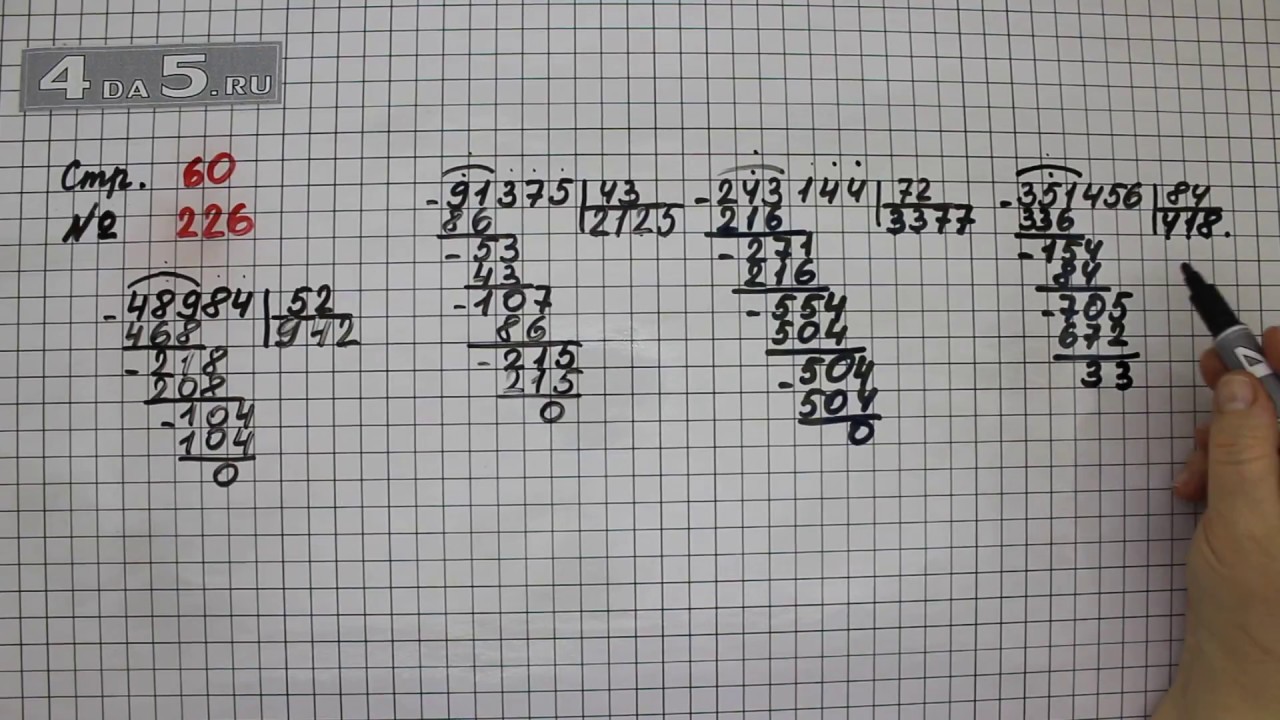 4 DA 5.RU
Стр. 60
№ 226
- 48984 | 52
468 | 942
- 218
208
- 104
104
0
- 91375 | 43
86 | 2125
- 53
43
- 107
86
- 215
215
0
- 243144 | 72
216 | 3377
- 271
216
- 554
504
- 504
504
0
- 351456 | 84
336 | 418.
- 154
84
- 705
672
33